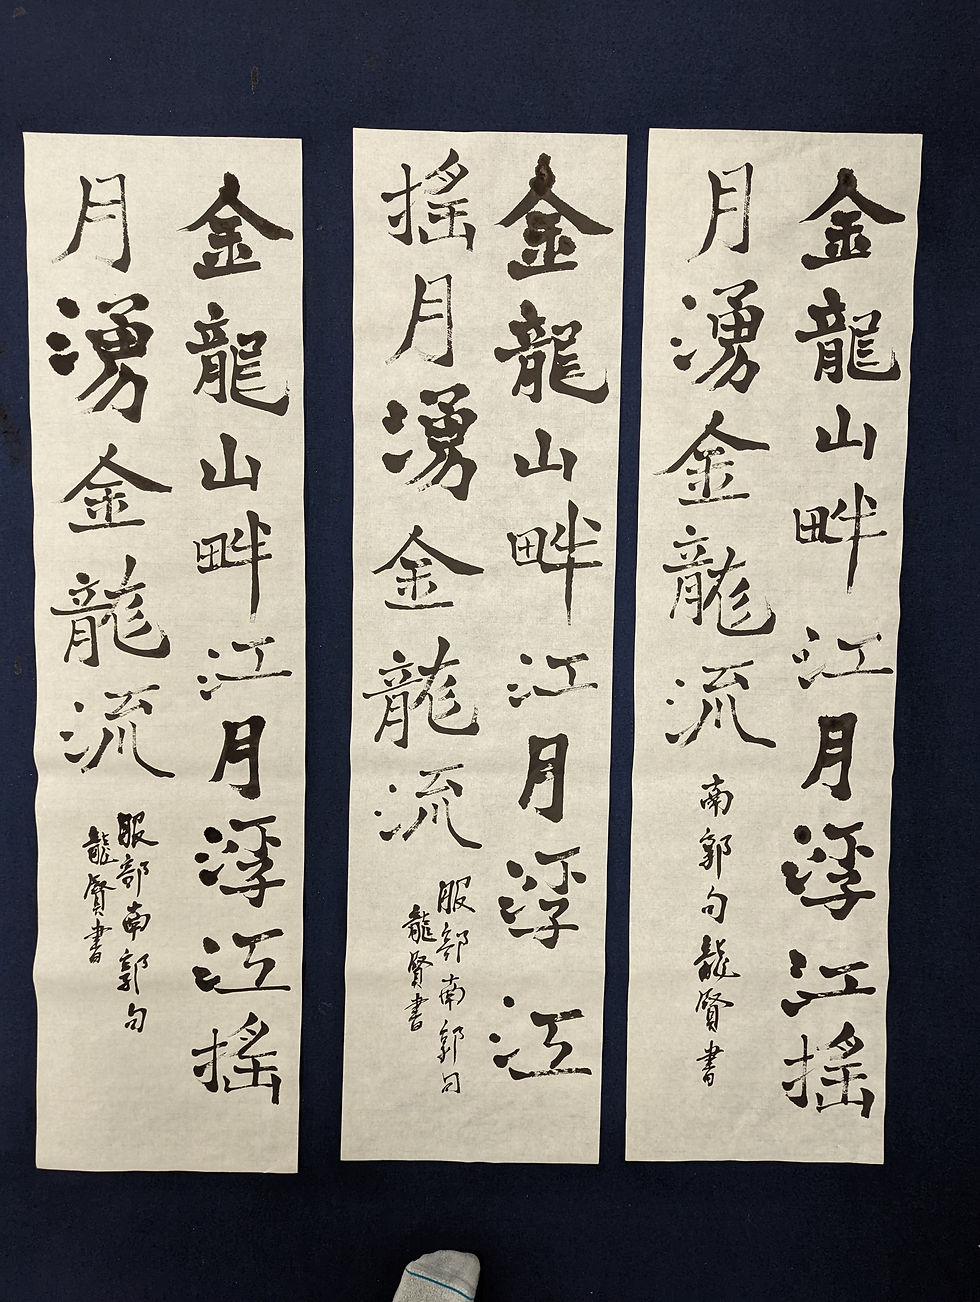 金龍山畔江月浮江搖
月湧金龍流
南郭句龍賢書
金龍山畔江月浮江
搖月湧金龍流
服部南郭句
龍賢書
金龍山畔江月浮江搖
月湧金龍流
服部南郭句
龍賢書